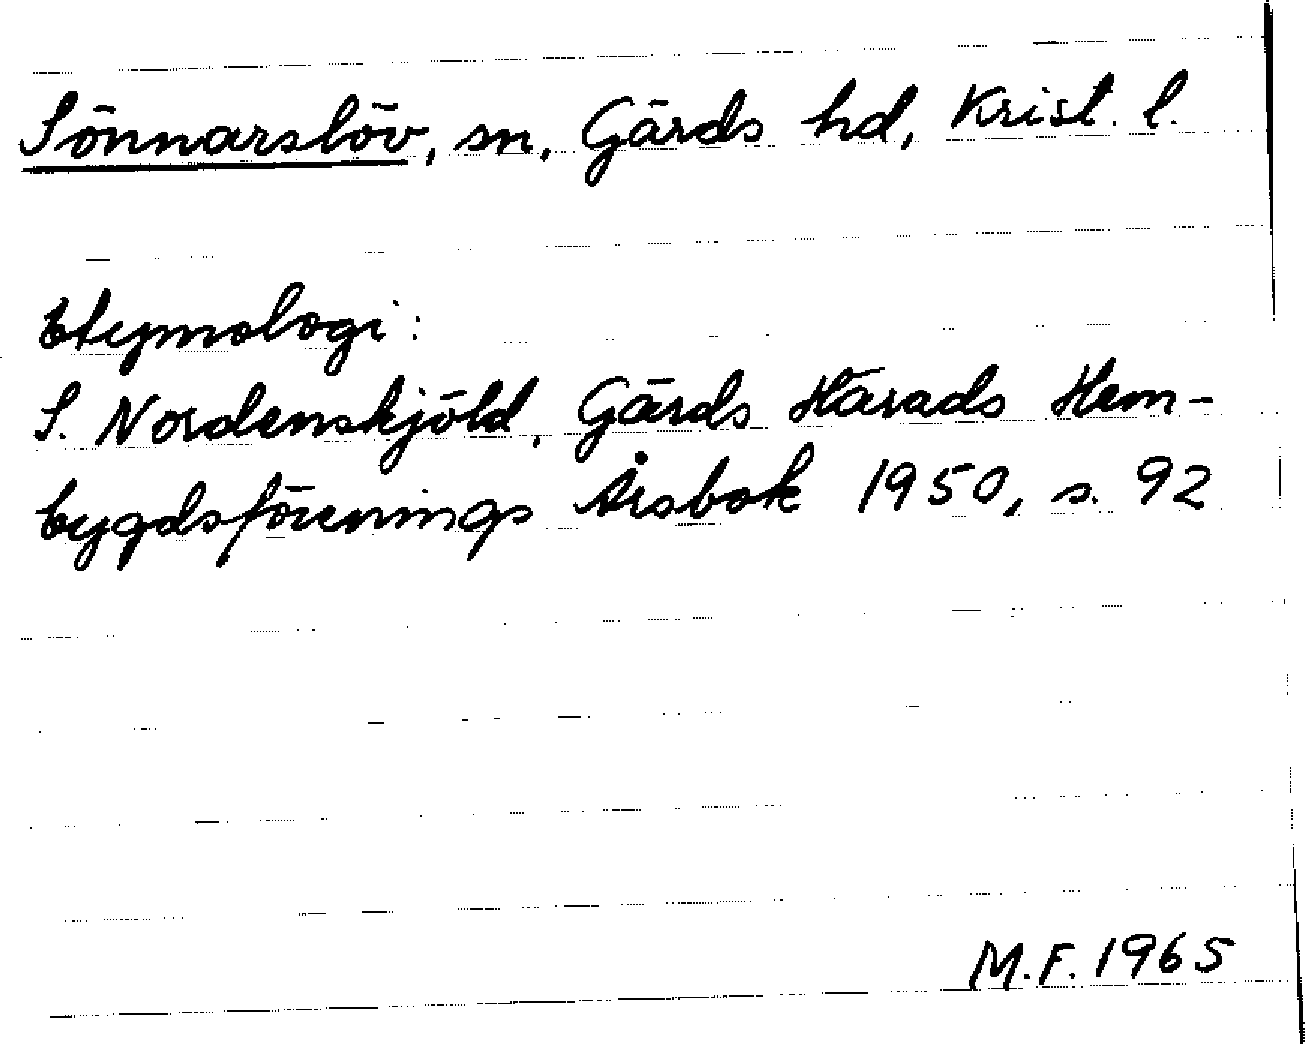 Sönnarslöv, sn, Gärds hd, Krist. l.
Etymologi:
S. Nordenskjöld, Gärds Härads Hem-
bygdsförenings Årsbok 1950, s. 92
M.F. 1965